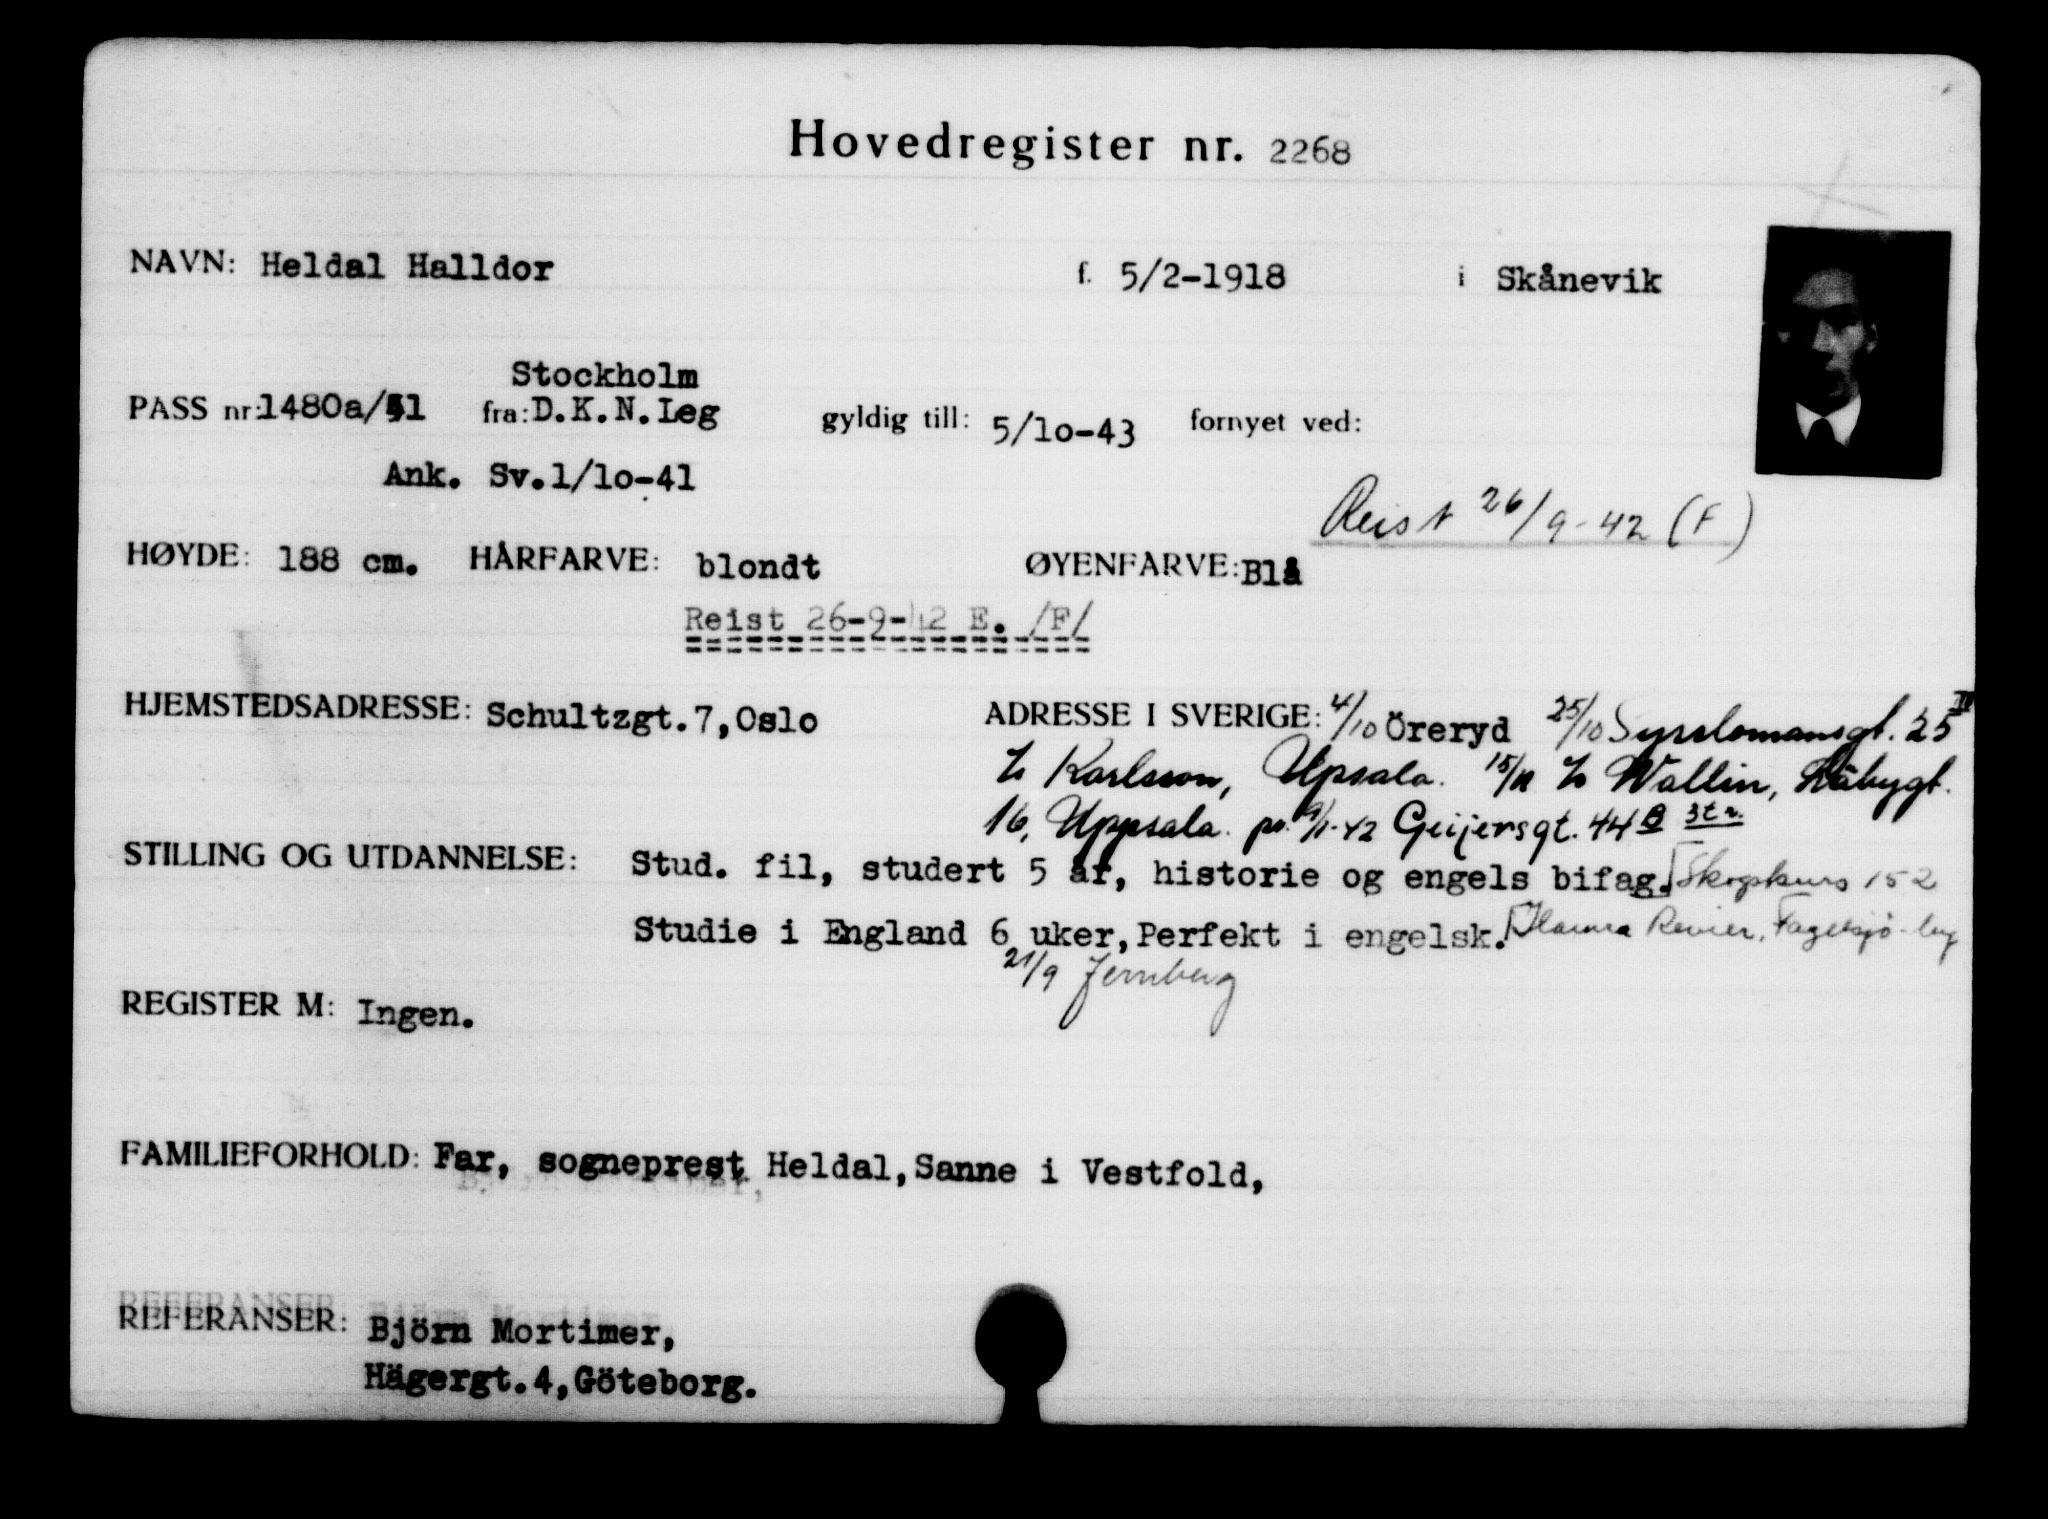 Hovedregister nr. 2268
NAVN: Heldal Halldor f. 5/2-1918 i Skånevik
Stockholm
PASS nr: 1480a/41 fra: D.K.N.Leg gyldig till: 5/lo-43 fornyet ved:
Ank. Sv.1/lo-41
Reist 26/9-42 (F)
HØYDE: 188 cm. HÅRFARVE: blondt ØYENFARVE: Blå
Reist 26-9-42 E. /F/
HJEMSTEDSADRESSE: Schultzgt.7,Oslo ADRESSE I SVERIGE: 4/10 Öreryd 25/10 Sysslomansgt. 25 II
Karlsson, Upsala. 15/11 Wallin,
16, Uppsala. pr. 9/1-42 Geijersgt. 44 B 3 tr.
STILLING OG UTDANNELSE: Stud. fil, studert 5 år, historie og engels bifag. Skogskurs 152
Studie i England 6 uker,Perfekt i engelsk. Hamra Revier, Fågelsjö
21/9 Jernberg
REGISTER M: Ingen.
FAMILIEFORHOLD: Far, sogneprest Heldal,Sanne i Vestfold,
REFERANSER: Björn Mortimer,
Hägergt.4,Göteborg.